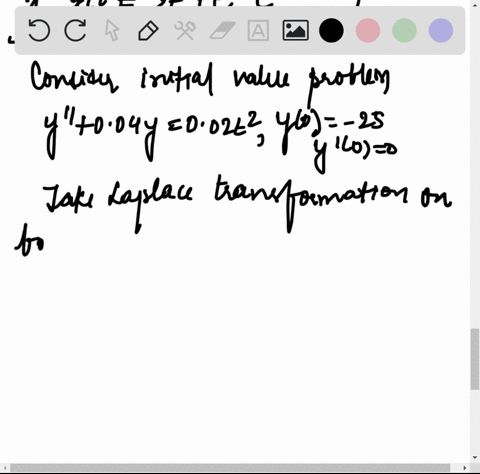 Consider initial value problem
y" + 0.04y = 0.02t², y(0) = -25
y'(0) = 0
Take Laplace transformation on
bo